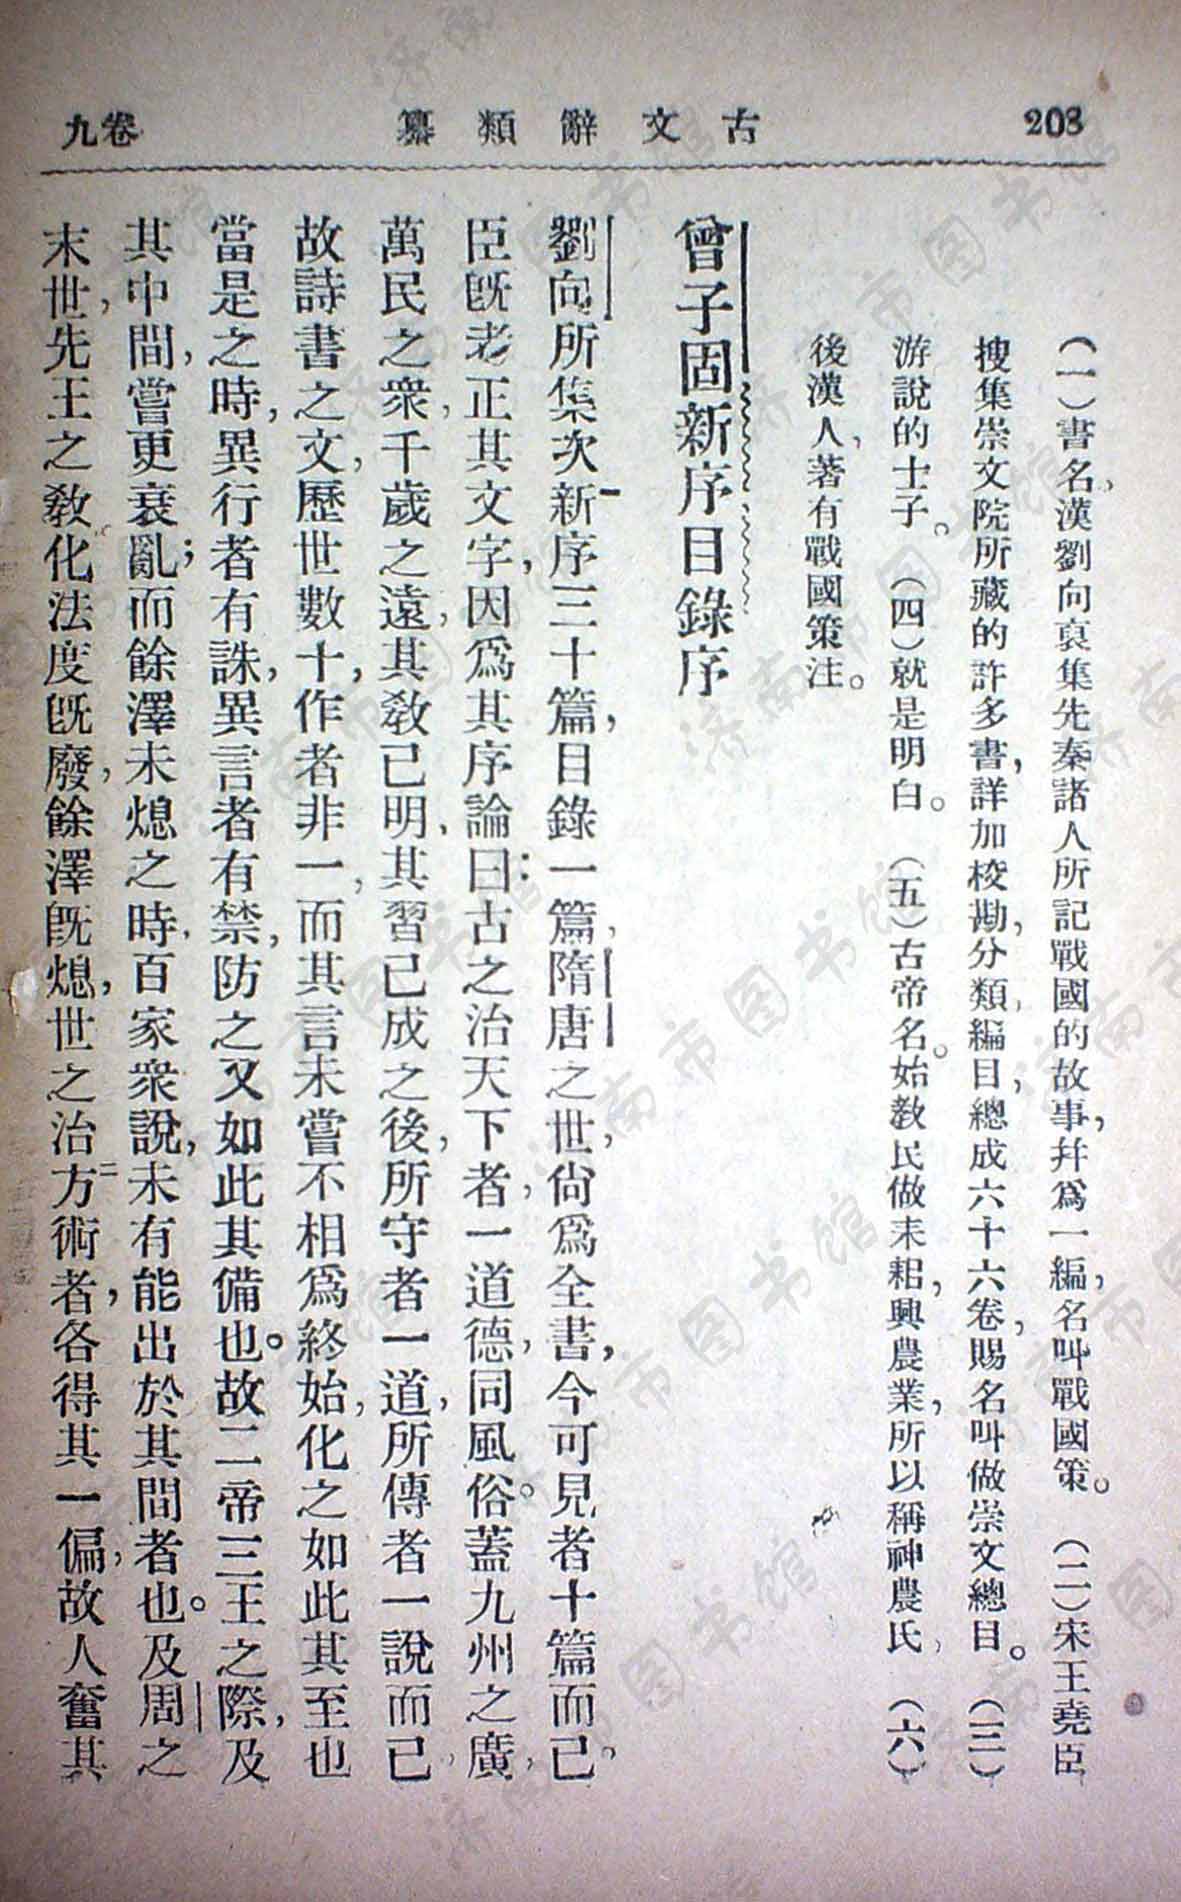 203
古文辭類纂
卷九
(一)書名,漢劉向裒集先秦諸人所記戰國的故事,幷爲一編,名叫戰國策。 (二)宋王堯臣
搜集崇文院所藏的許多書,詳加校勘,分類編目,總成六十六卷,賜名叫做崇文總目。 (三)
游說的士子。 (四)就是明白。 (五)古帝名。始教民做耒耜,興農業,所以稱神農氏, (六)
後漢人,著有戰國策注。
曾子固新序目錄序
劉向所集次新序三十篇,目錄一篇,隋唐之世,尙爲全書,今可見者十篇而已。
臣旣老正其文字,因爲其序論曰:古之治天下者,一道德,同風俗。蓋九州之廣,
萬民之衆,千歲之遠,其敎已明,其習已成之後,所守者一道,所傳者一說而已,
故詩書之文,歷世數十,作者非一,而其言未嘗不相爲終始,化之如此其至也
當是之時,異行者有誅,異言者有禁,防之又如此其備也。故二帝三王之際,及
其中間,嘗更衰亂;而餘澤未熄之時,百家衆說,未有能出於其間者也。及周之
末世,先王之敎化法度旣廢,餘澤旣熄,世之治方術者,各得其一偏,故人奮其
济南市图书馆